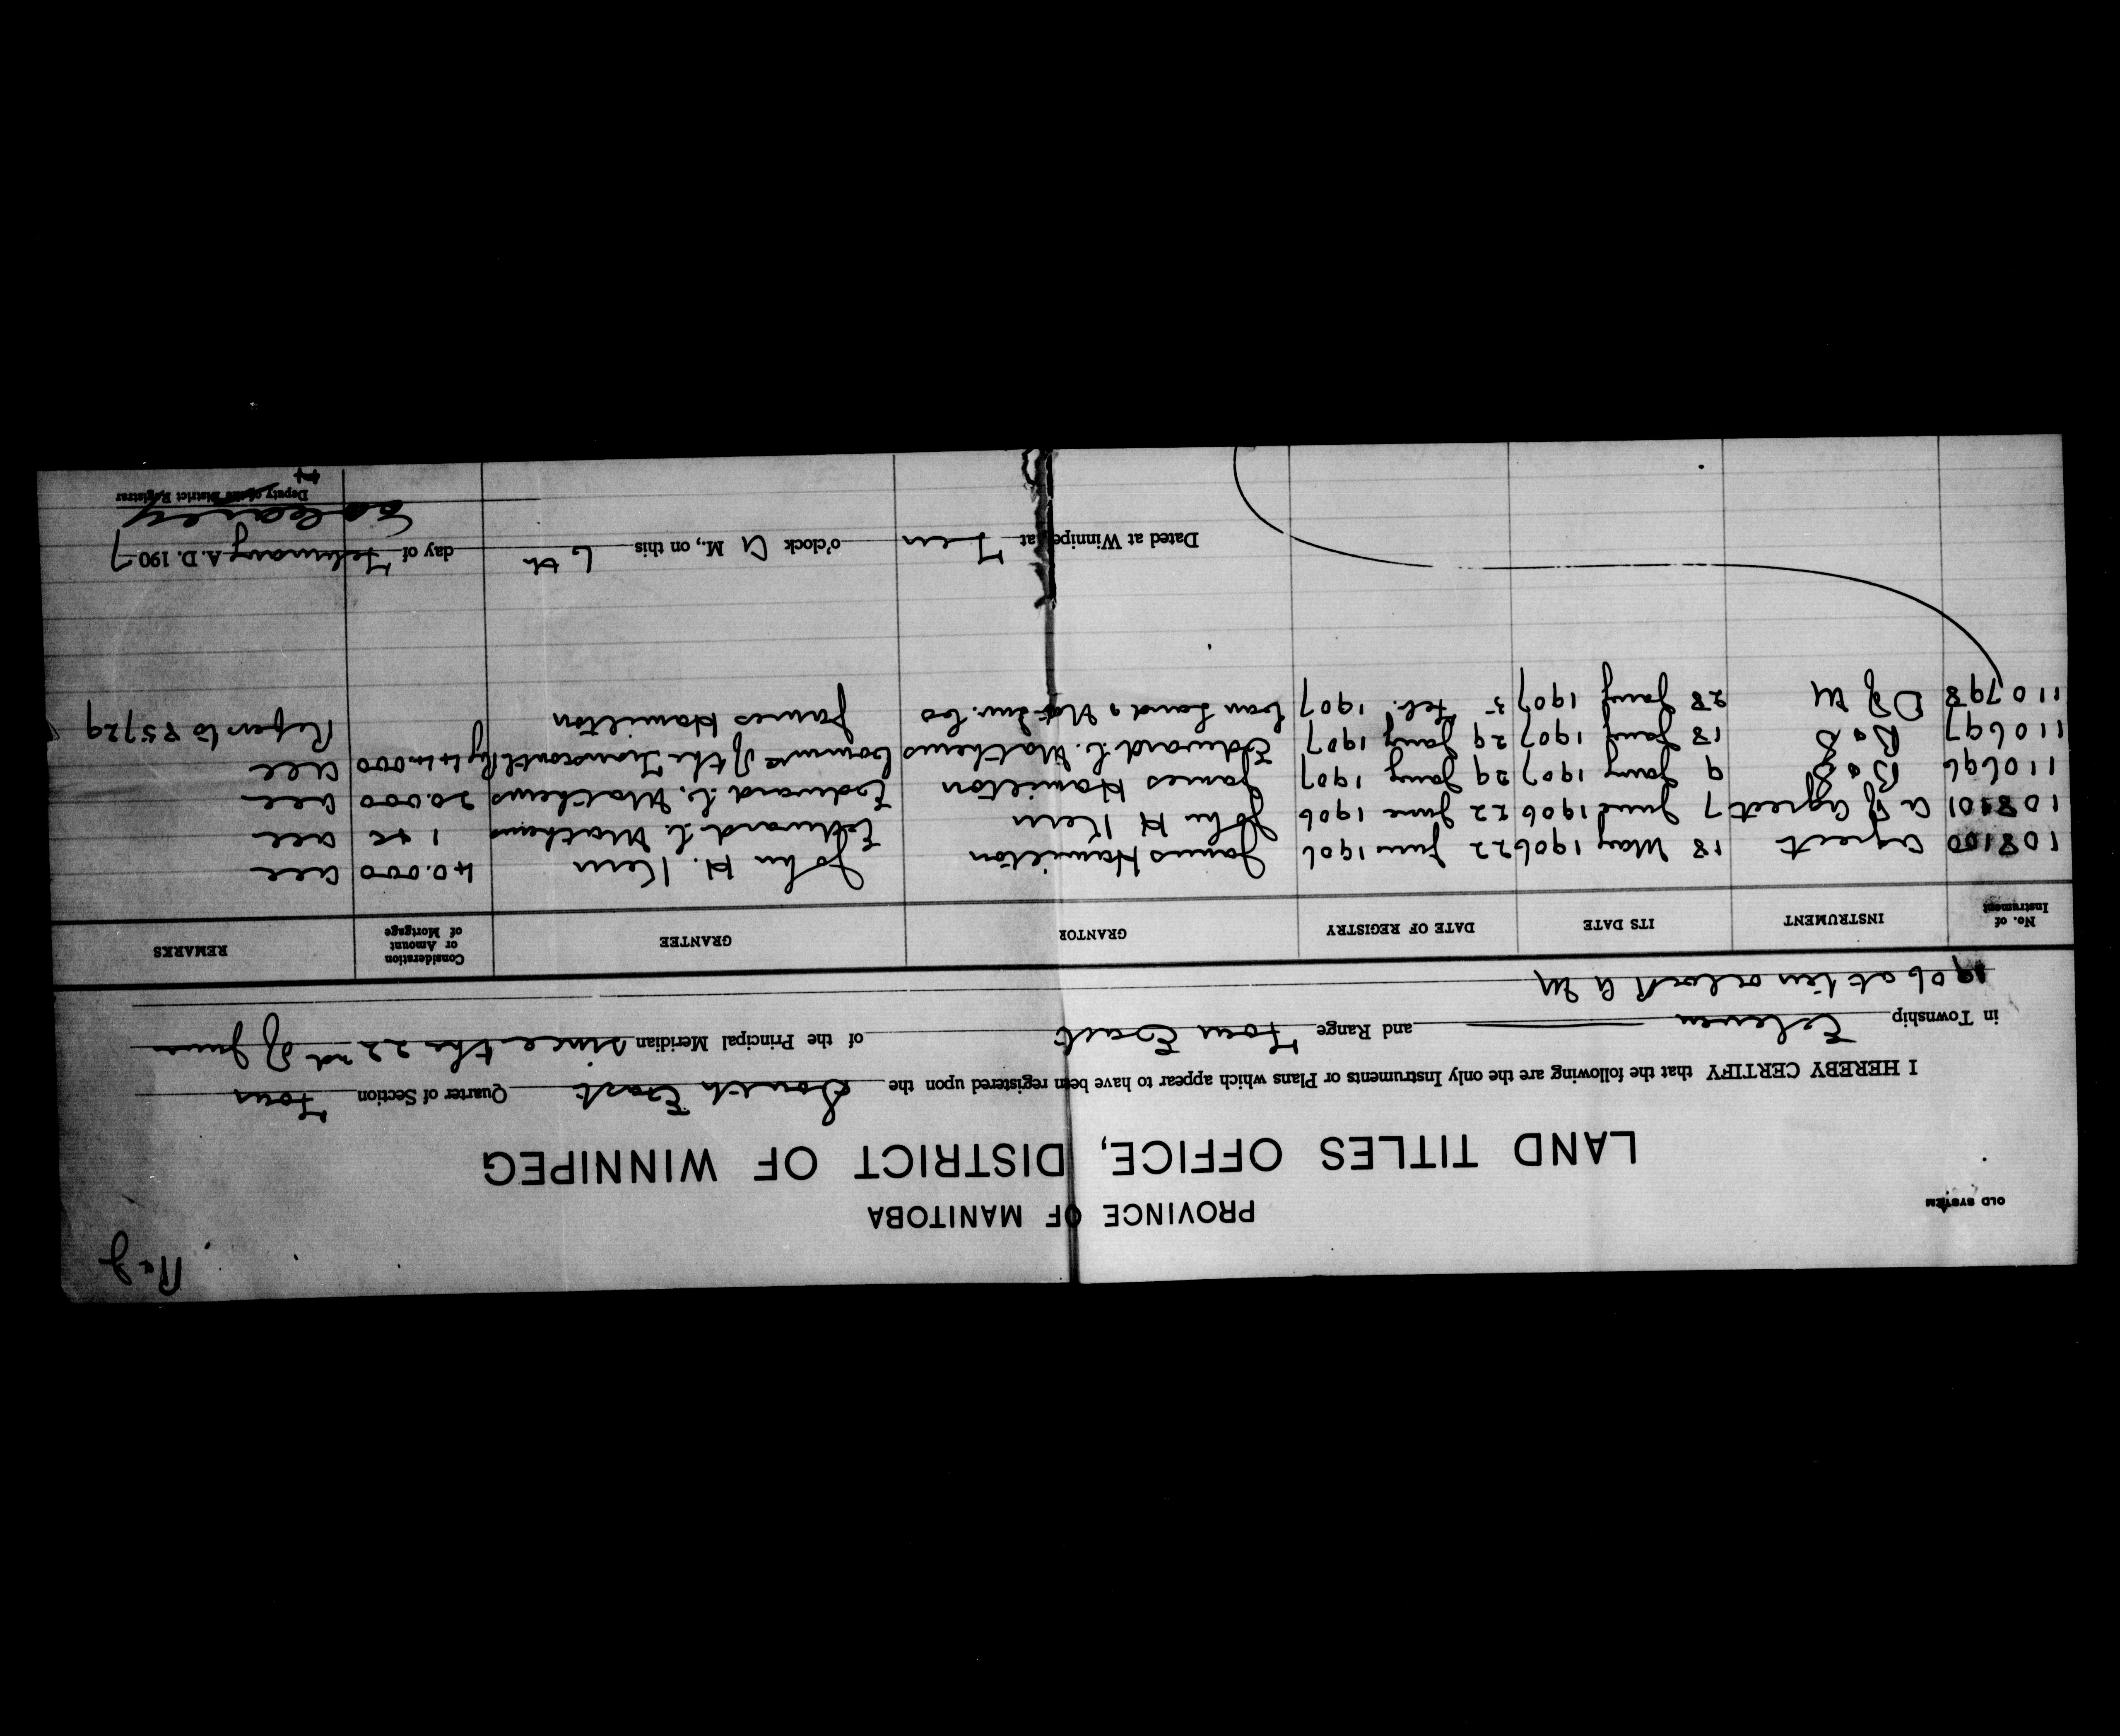 Reg
OLD SYSTEM
PROVINCE OF MANITOBA
LAND TITLES OFFICE, DISTRICT OF WINNIPEG
I HEREBY CERTIFY that the following are the only Instruments or Plans which appear to have been registered upon the South East Quarter of Section Four
in Township Eleven and Range Four East of the Principal Meridian since the 22nd of June
1906 at ten oclock A M
No. of Instrument INSTRUMENT ITS DATE DATE OF REGISTRY GRANTOR GRANTEE Consideration or Amount of Mortgage REMARKS
108100 Agreet 18 May 1906 22 June 1906 James Hamilton John H. Kern 40.000 All
108101 A of Agreet 7 June 1906 22 June 1906 John H Kern Edward C Mathews 1 &c All
110696 B & S 9 Jany 1907 29 Jany 1907 James Hamilton Edward C. Mathews 20.000 All
110697 B & S 18 Jany 1907 29 Jany 1907 Edward C. Mathews Commrs of the Transcontl Ry 44.000 All
110798 D of M 28 Jany 1907 5 Feb. 1907 Can Land & Inv. Co James Hamilton Refers to 85729
Dated at Winnipeg at Ten o'clock A M., on this 6th day of February A. D. 1907
Deputy District Registrar